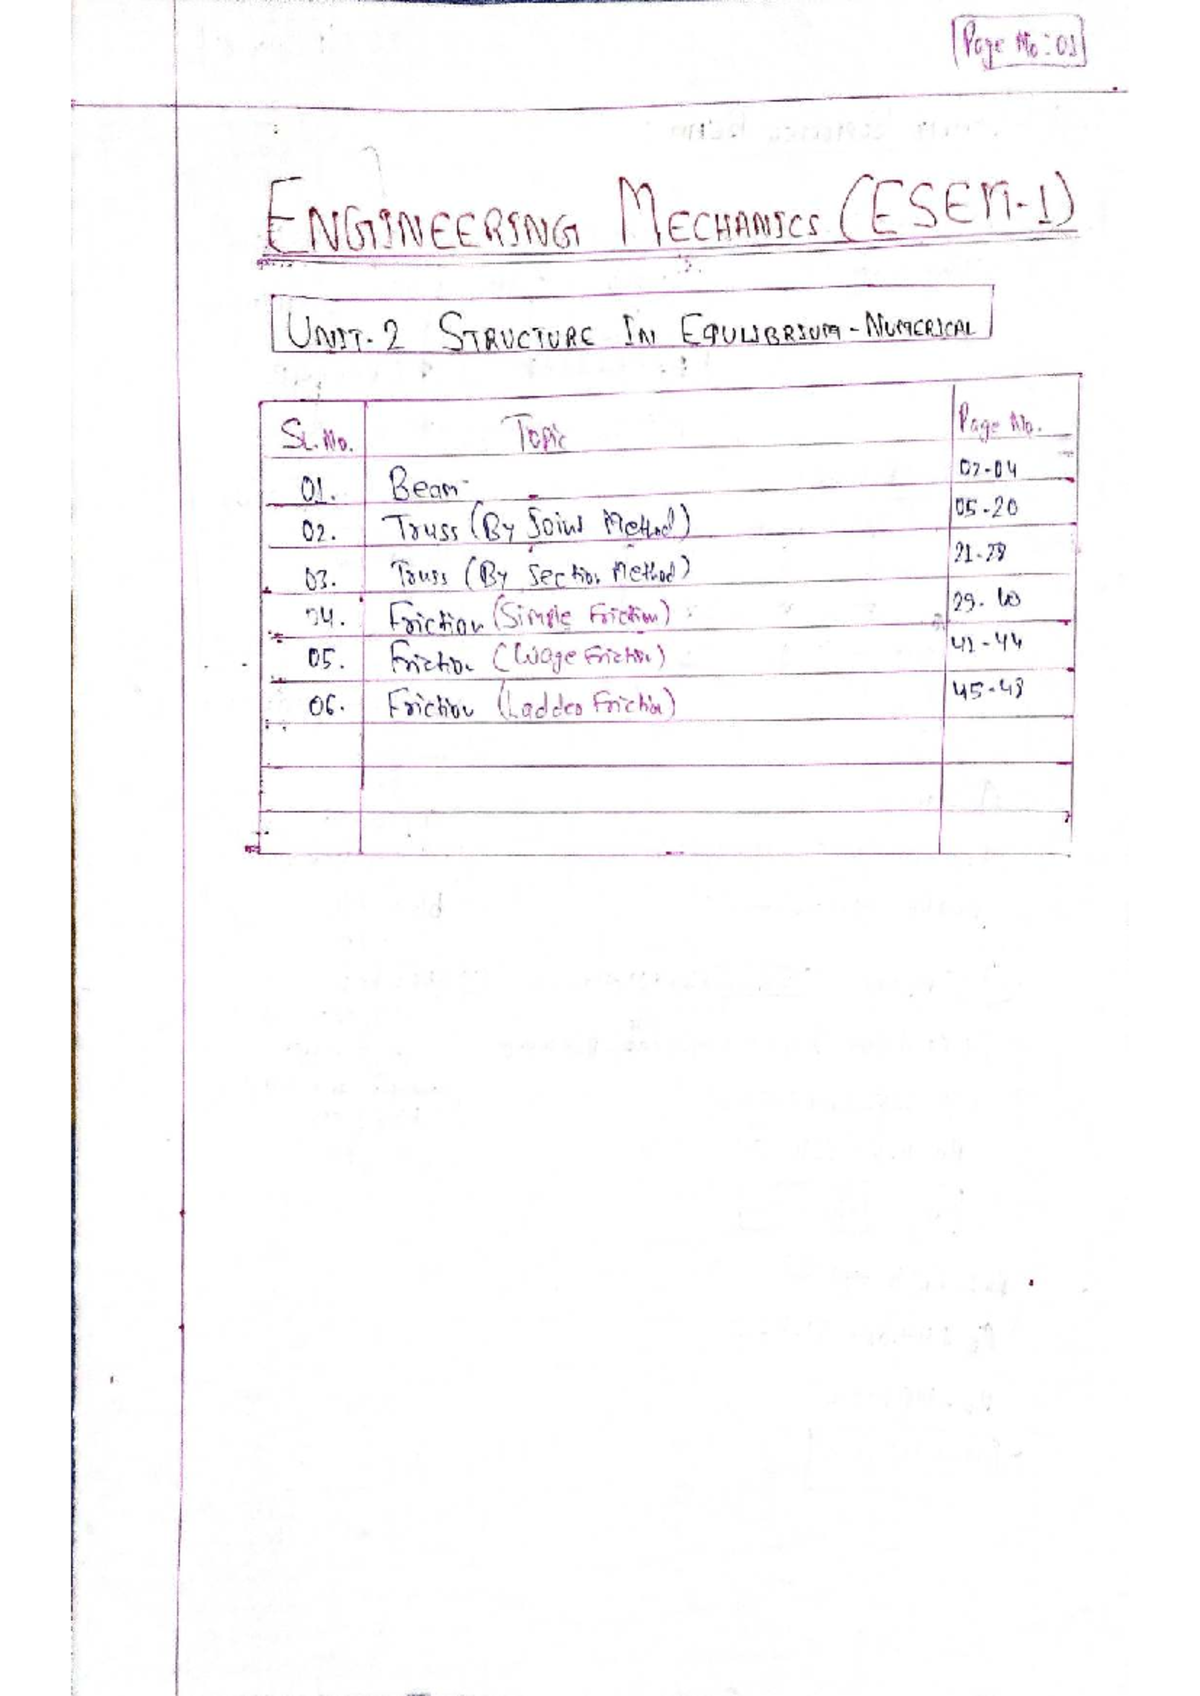 Page No: 01
ENGINEERING MECHANICS (ESEM-1)
UNIT-2 STRUCTURE IN EQULIBRIUM-NUMERICAL
SL.No. Topic Page No.
01. Beam 02-04
02. Truss (By Joint Method) 05-20
03. Truss (By Section Method) 21-28
04. Friction (Simple Friction) 29-40
05. Friction (Wage Friction) 41-44
06. Friction (Ladder Friction) 45-48